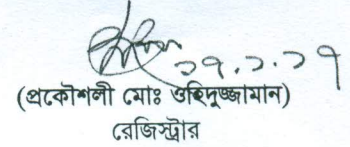 ২৭.১.২৭
(প্রকৌশলী মোঃ ওহিদুজ্জামান)
রেজিস্ট্রার